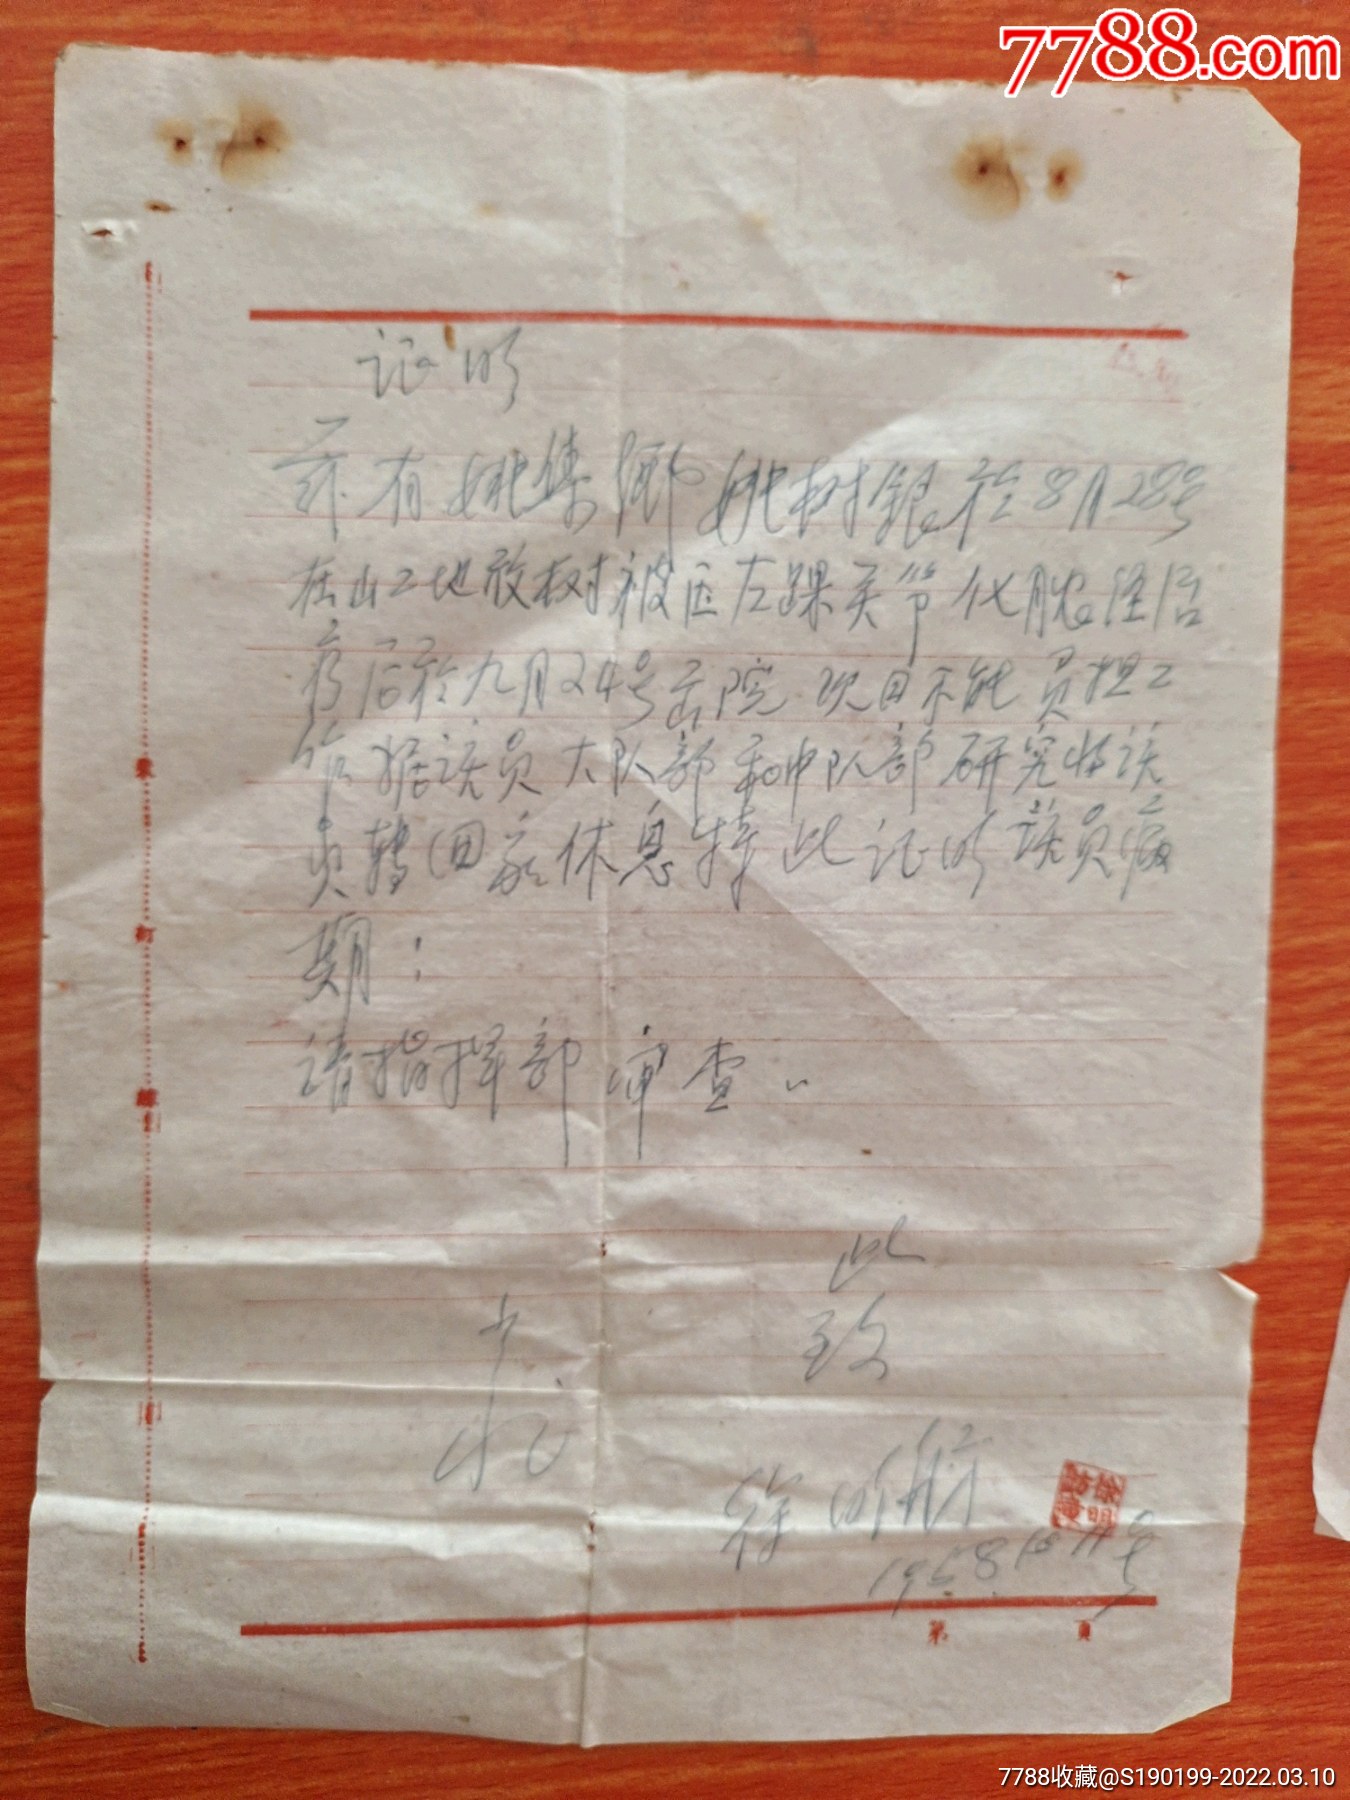 7788.com
证明
兹有姚集鄉姚树銀於8月28号
在山工地放树被压左踝关节化脓住居
疗后於九月24号出院 次日不能员担工
作据该员大队部和中队部研究将该
员转回家休息特此证明该员病
期：
请指挥部审查
此
致
敬
礼
徐明
1958
徐明
第 頁
裝
訂
線
7788收藏@S190199-2022.03.10